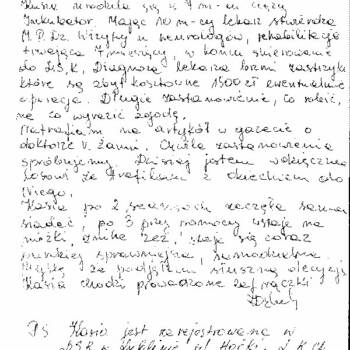 Kasia urodziła się w 7 m-cu ciąży
Inkubator. Mając 10 m-cy lekarz stwierdza
M.P.Dz. Wizyty u neurologów, rehabilitacja
trwająca 7 miesięcy, w końcu skierowanie
do DSK. Diagnoza lekarza brzmi zastrzyki
które są zbyt kosztowne 1500 zł ewentualnie
operacja. Długie zastanowienie, co robić,
na co wyrazić zgodę.
Natrafiłam na artykół w gazecie o
doktorze V. Chwila zastanowienia
spróbujemy. Dzisiaj jestem wdzięczna
losowi że trafiłam z dzieckiem do
Niego.
Kasia po 2 zaczęła sama
siadać, po 3 przy pomocy wstaje na
nóżki, znika "zez", staje się coraz
bardziej sprawniejsza, samodzielna.
Myślę, że podjęłam słuszną decyzję
Kasia chodzi prowadzona za rączki
PS Kasia jest zarejestrowana w
DSK w Lublinie ul.